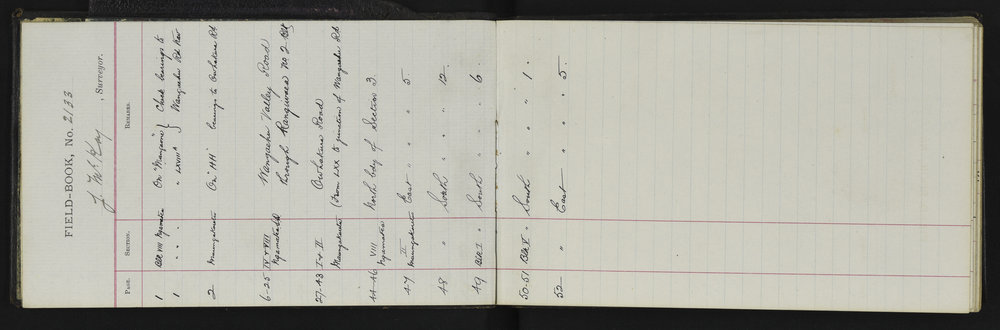 FIELD-BOOK, No. 2133
J. McKay, Surveyor.
PAGE. SECTION. REMARKS.
1 Blk VIII Ngamatea On "Mangaone" } Check bearings to
1 " " " " LXVIIIA } Mangaehu Rd trav
2 Maungakaretu On "HH" bearings to Owhakura Rd
6-25 IV + VIII Mangaehu Valley Road
Ngamatea through Rangiwaea No 2 Blk
27-43 I + II Owhakura Road
Maungakaretu (From LXX to junction of Mangaehu Rd)
44-46 VIII North bdy of Section 3
Ngamatea
47 II East " " " 5
Maungakaretu
48 " South " " " 12.
49 Blk I " South " " " 6.
50-51 Blk V " South " " 1.
52 " East " " 5.